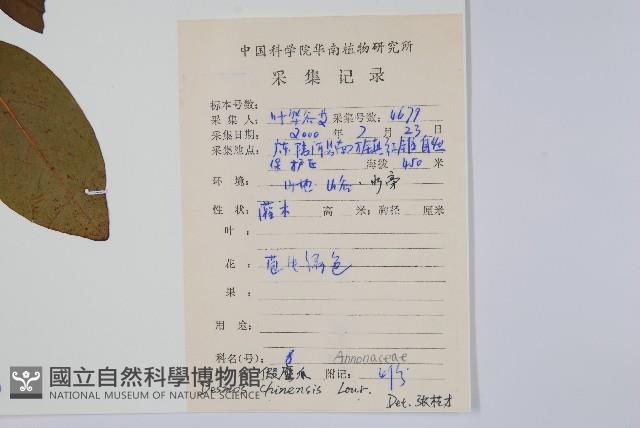 中国科学院华南植物研究所
采集记录
标本号数：
采集人：叶华谷 采集号数：4679
采集日期：2000 年 7 月 23 日
采集地点：
保护区 海拔 450 米
环境：山地 山谷，
性状：灌木 高 米；胸径 厘米
叶：
花：
果：
用途：
科名(号)： Annonaceae
假鹰爪 附记：
Desmos chinensis Lour.
Det. 张桂才
國立自然科學博物館
NATIONAL MUSEUM OF NATURAL SCIENCE